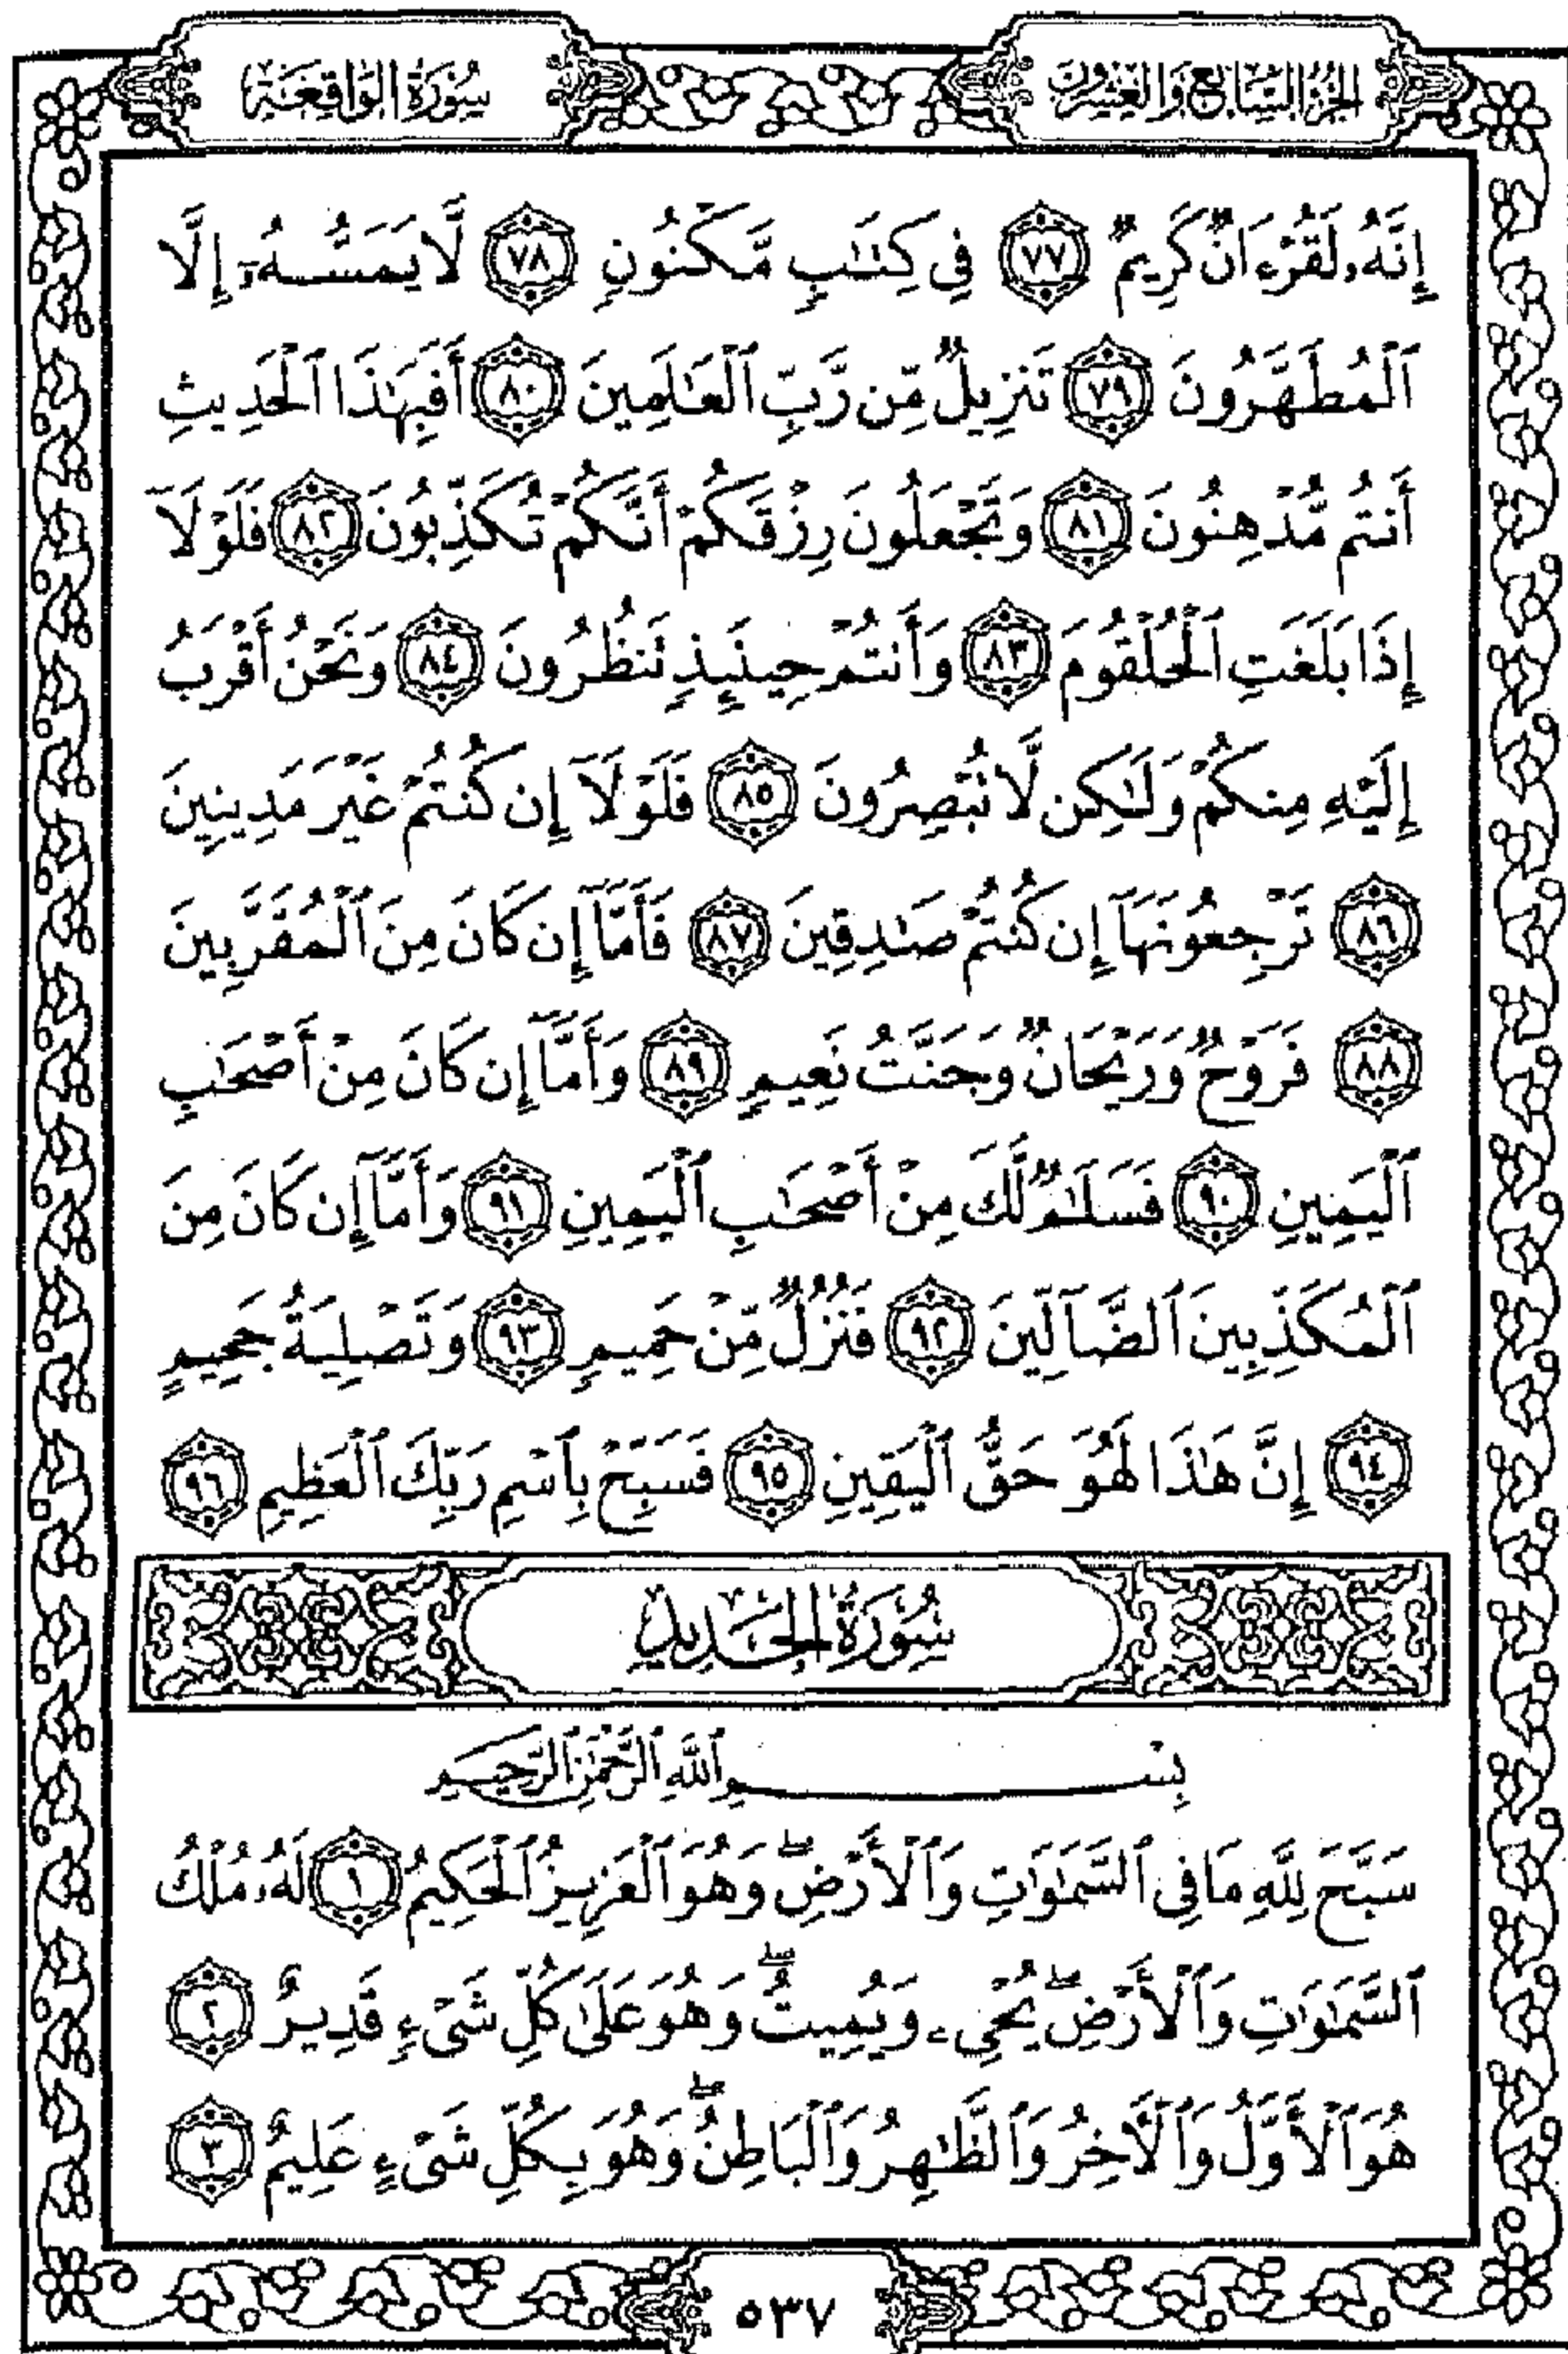 الجزء السابع والعشرون
سورة الواقعة
إِنَّهُۥ لَقُرْءَانٌ كَرِيمٌ ٧٧ فِي كِتَٰبٍ مَّكْنُونٍ ٧٨ لَّا يَمَسُّهُۥٓ إِلَّا
ٱلْمُطَهَّرُونَ ٧٩ تَنزِيلٌ مِّن رَّبِّ ٱلْعَٰلَمِينَ ٨٠ أَفَبِهَٰذَا ٱلْحَدِيثِ
أَنتُم مُّدْهِنُونَ ٨١ وَتَجْعَلُونَ رِزْقَكُمْ أَنَّكُمْ تُكَذِّبُونَ ٨٢ فَلَوْلَآ
إِذَا بَلَغَتِ ٱلْحُلْقُومَ ٨٣ وَأَنتُمْ حِينَئِذٍ تَنظُرُونَ ٨٤ وَنَحْنُ أَقْرَبُ
إِلَيْهِ مِنكُمْ وَلَٰكِن لَّا تُبْصِرُونَ ٨٥ فَلَوْلَآ إِن كُنتُمْ غَيْرَ مَدِينِينَ
٨٦ تَرْجِعُونَهَآ إِن كُنتُمْ صَٰدِقِينَ ٨٧ فَأَمَّآ إِن كَانَ مِنَ ٱلْمُقَرَّبِينَ
٨٨ فَرَوْحٌ وَرَيْحَانٌ وَجَنَّتُ نَعِيمٍ ٨٩ وَأَمَّآ إِن كَانَ مِنْ أَصْحَٰبِ
ٱلْيَمِينِ ٩٠ فَسَلَٰمٌ لَّكَ مِنْ أَصْحَٰبِ ٱلْيَمِينِ ٩١ وَأَمَّآ إِن كَانَ مِنَ
ٱلْمُكَذِّبِينَ ٱلضَّآلِّينَ ٩٢ فَنُزُلٌ مِّنْ حَمِيمٍ ٩٣ وَتَصْلِيَةُ جَحِيمٍ
٩٤ إِنَّ هَٰذَا لَهُوَ حَقُّ ٱلْيَقِينِ ٩٥ فَسَبِّحْ بِٱسْمِ رَبِّكَ ٱلْعَظِيمِ ٩٦
سُورَةُ الحَدِيدِ
بِسْمِ ٱللَّهِ ٱلرَّحْمَٰنِ ٱلرَّحِيمِ
سَبَّحَ لِلَّهِ مَا فِي ٱلسَّمَٰوَٰتِ وَٱلْأَرْضِۖ وَهُوَ ٱلْعَزِيزُ ٱلْحَكِيمُ ١ لَهُۥ مُلْكُ
ٱلسَّمَٰوَٰتِ وَٱلْأَرْضِۖ يُحْىِۦ وَيُمِيتُۖ وَهُوَ عَلَىٰ كُلِّ شَىْءٍ قَدِيرٌ ٢
هُوَ ٱلْأَوَّلُ وَٱلْءَاخِرُ وَٱلظَّٰهِرُ وَٱلْبَاطِنُۖ وَهُوَ بِكُلِّ شَىْءٍ عَلِيمٌ ٣
٥٣٧